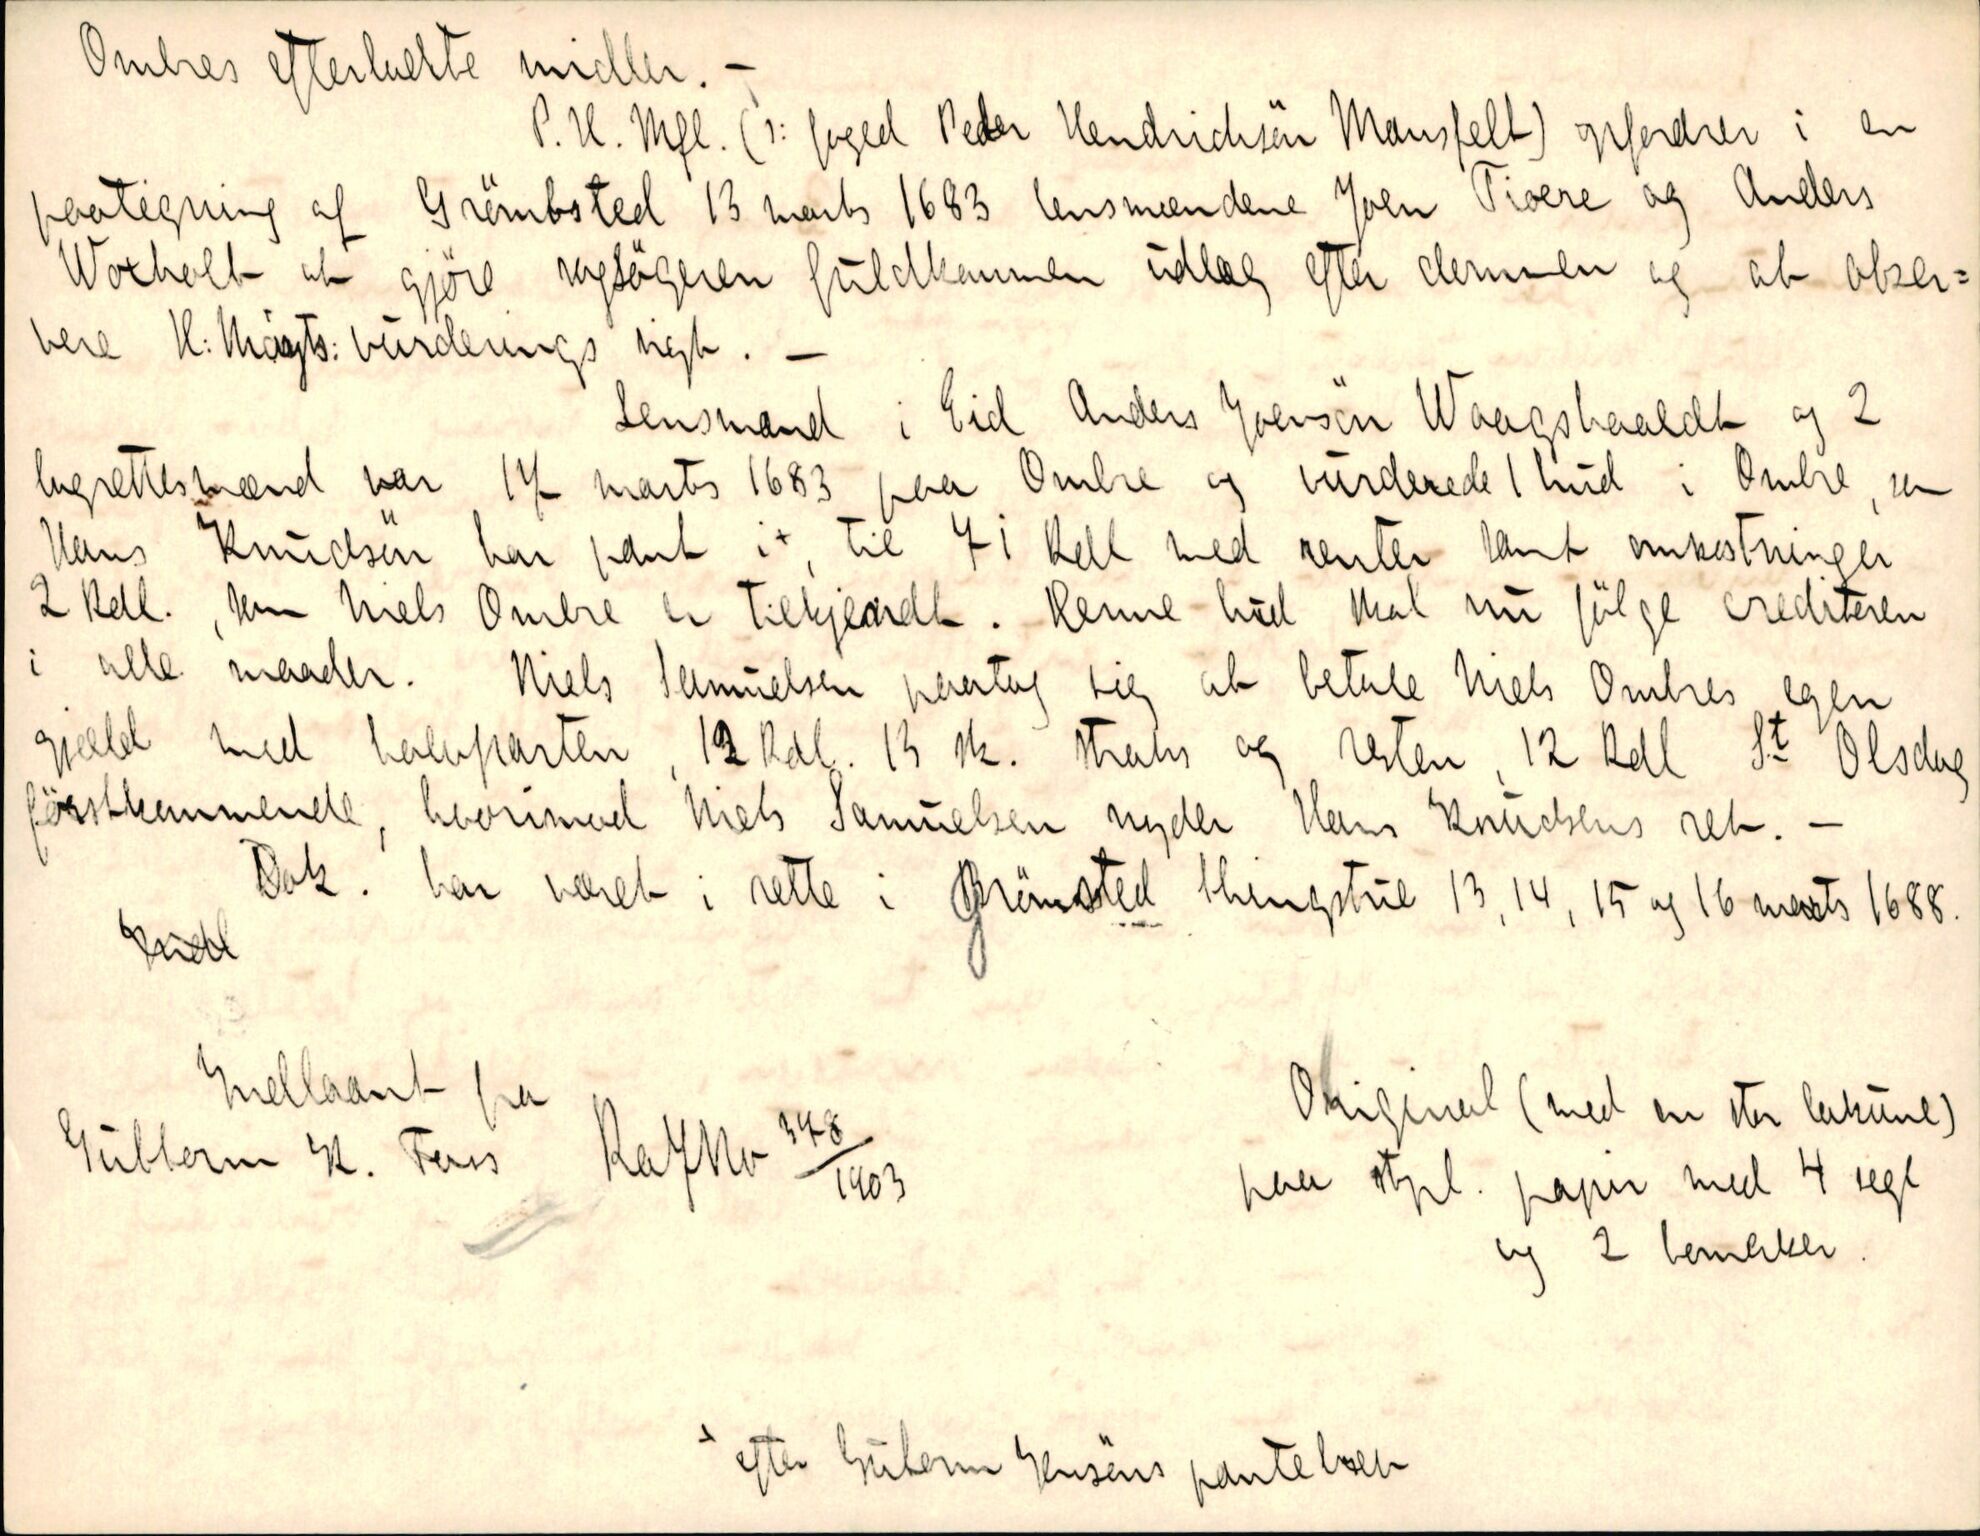 Ombres efterladte midler. –
P. H. Mfl. (ɔ: foged Peder Hendrichsön Mansfelt) opfordrer i en
paategning af Grömbsted 13 marts 1683 lensmændene Joen Tvere og Anders
Woxholt at gjöre sagsögeren fuldkommen udlæg efter dommen og at obser=
vere K: Mayts: vurderings rigt. –
Lensmand i Eid Anders Joensön Waagshaaldt og 2
lagrettesmænd var 17 marts 1683 paa Ombre og vurderede 1 hud i Ombre, som
Hans Knudsön har pant i+, til 71 Rdl med renter samt omkostninger
2 Rdl., som Niels Ombre er tilkjendt. Denne hud skal nu fölge creditoren
i alle maader. Niels Samuelsen paatog sig at betale Niels Ombres egen
gjæld med halvparten, 12 Rdl. 13 sk. straks og resten, 12 Rdl St Olsdag
förstkommende, hvorimod Niels Samuelsen nyder Hans Knudsens ret. –
Dok. har været i rette i Grömsted thingstue 13, 14, 15 og 16 marts 1688.
Indl
Indlaant fra
Gutterm K. Foss RafNo 348/1903
Original (med en stor lakune)
paa stpl. papir med 4 segl
og 2 bomerker.
+ efter Guterm Jensöns pantebrev